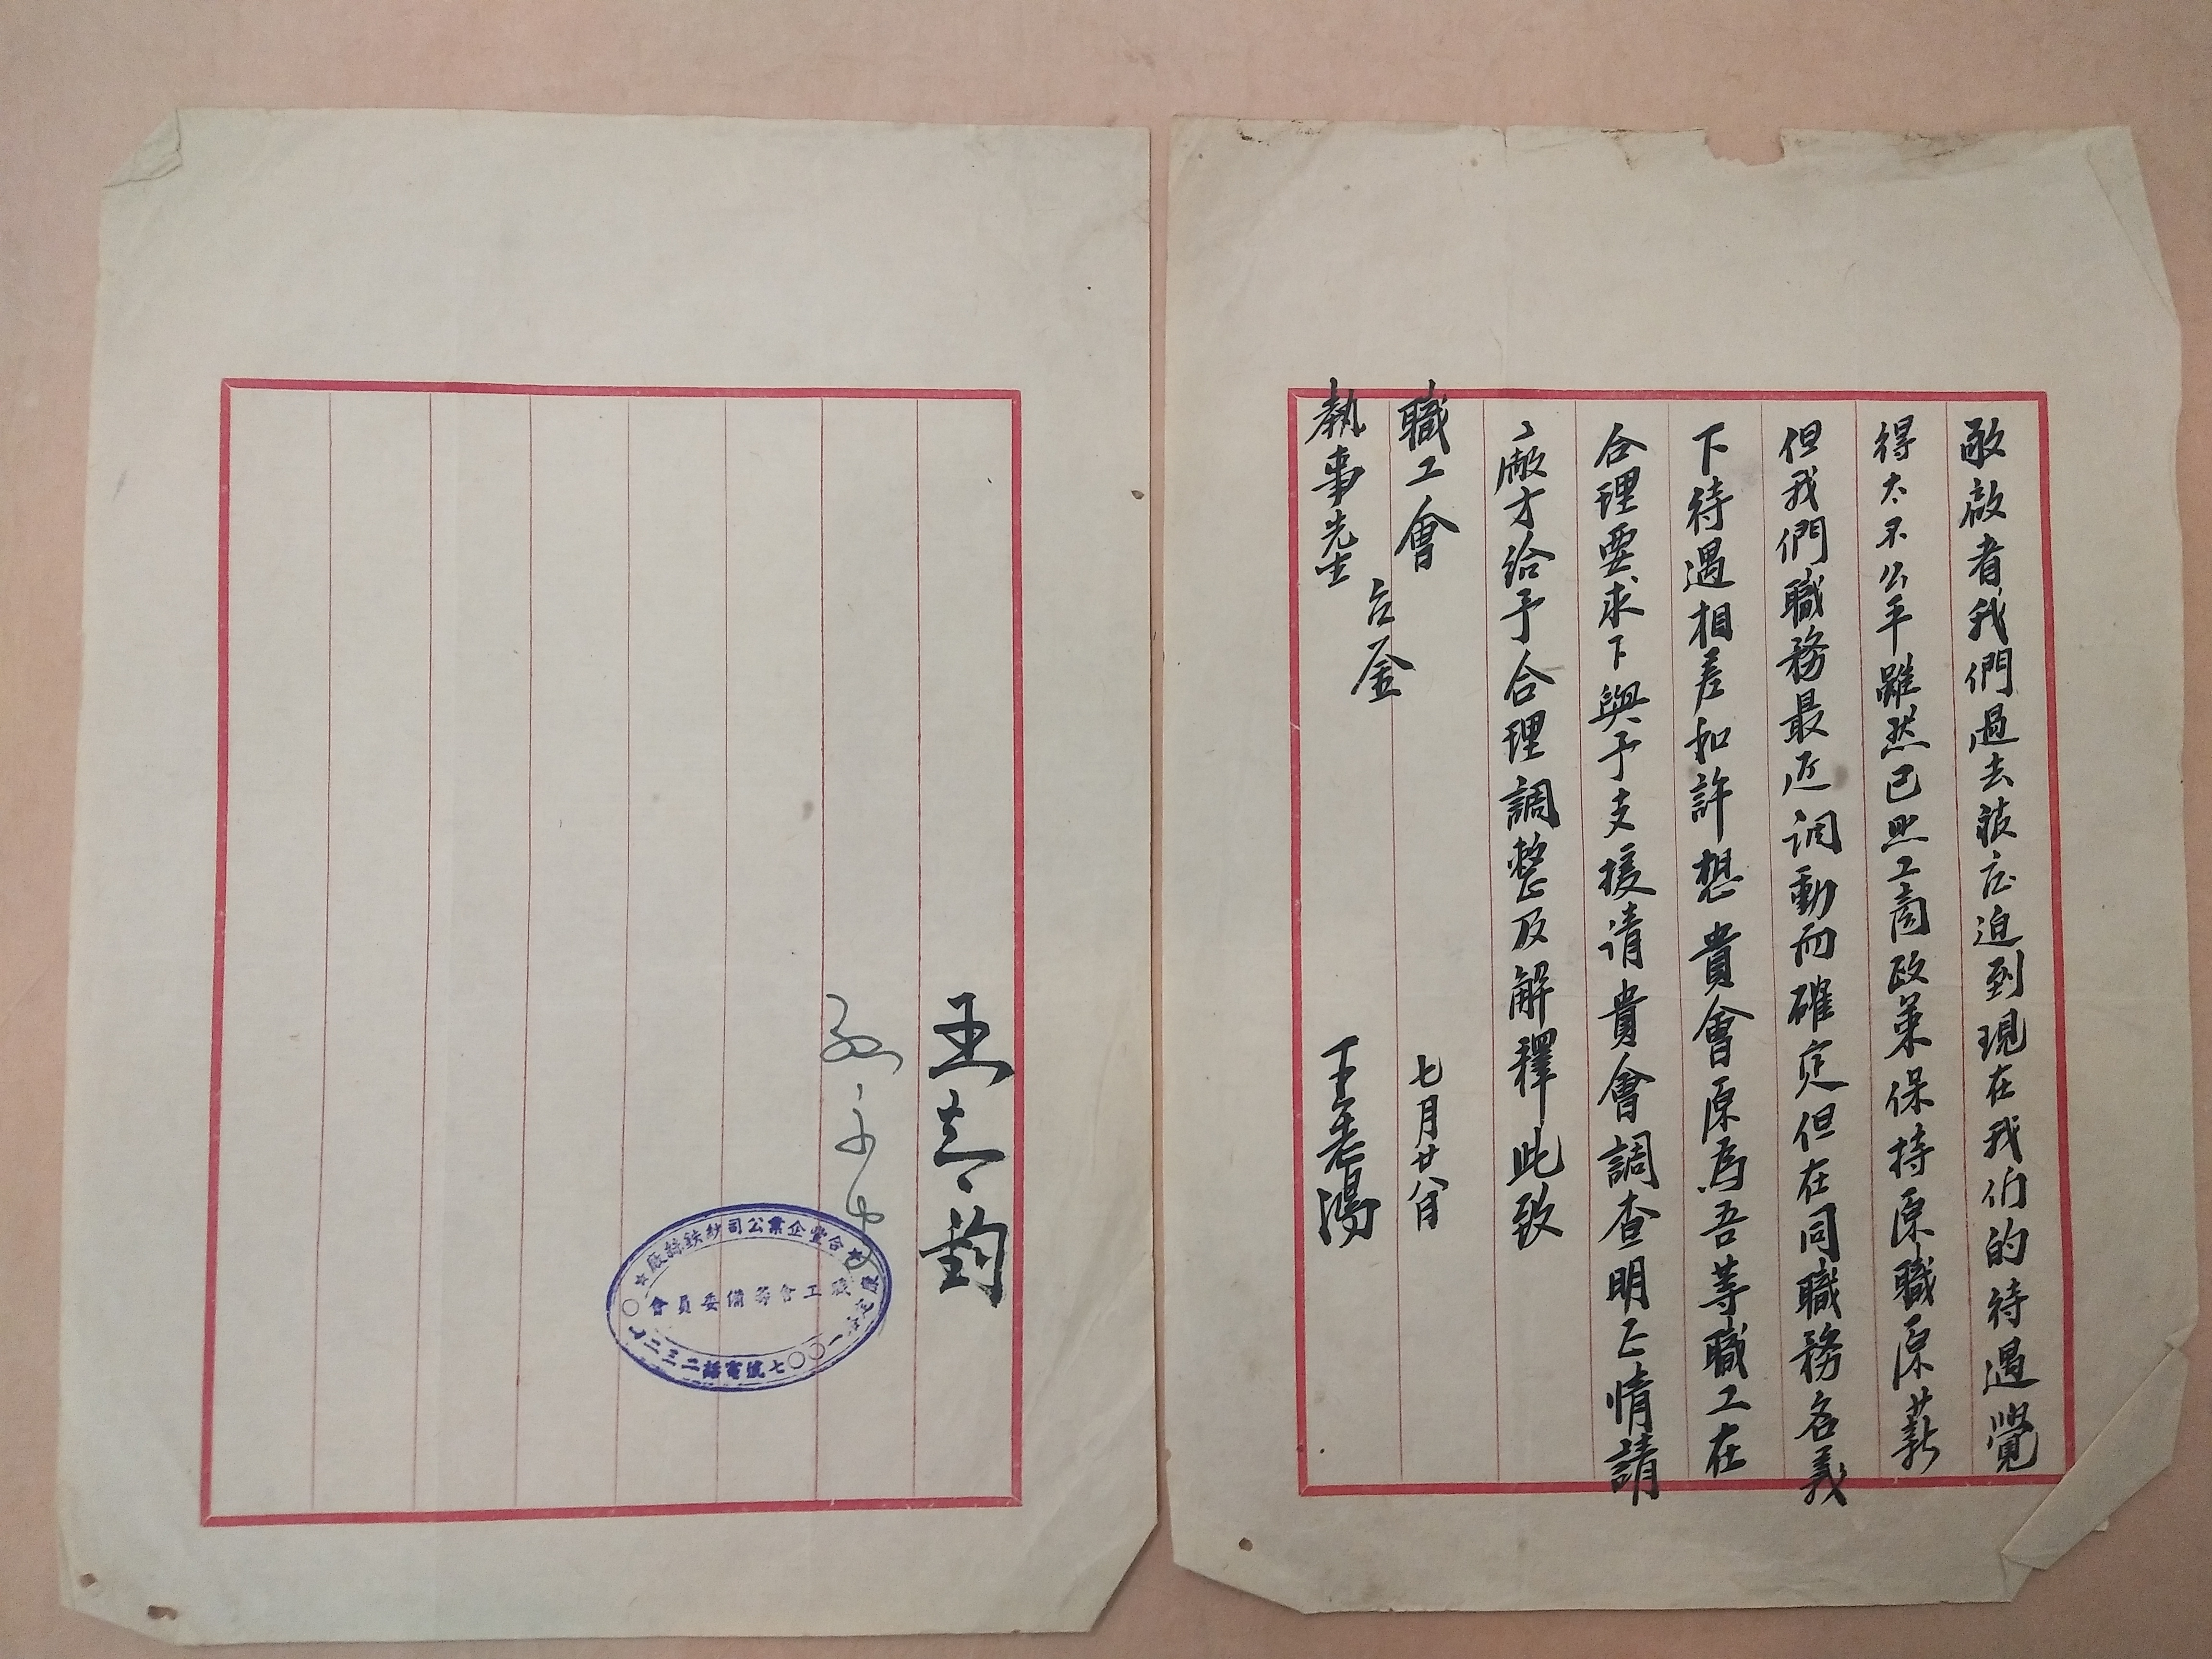 敬啟者我們過去被壓迫到現在我们的待遇覺
得太不公平雖然已照工商政策保持原職原薪
但我們職務最近调動而確定但在同職務名義
下待遇相差和許想貴會原為吾等職工在
合理要求下與予支援请貴會調查明正情請
廠才給予合理調整及解釋此致
職工會
執事先生
台鉴
七月廿八日
王
王志鈞
合豐企業公司紗鉄絲廠
職工會籌備委員會